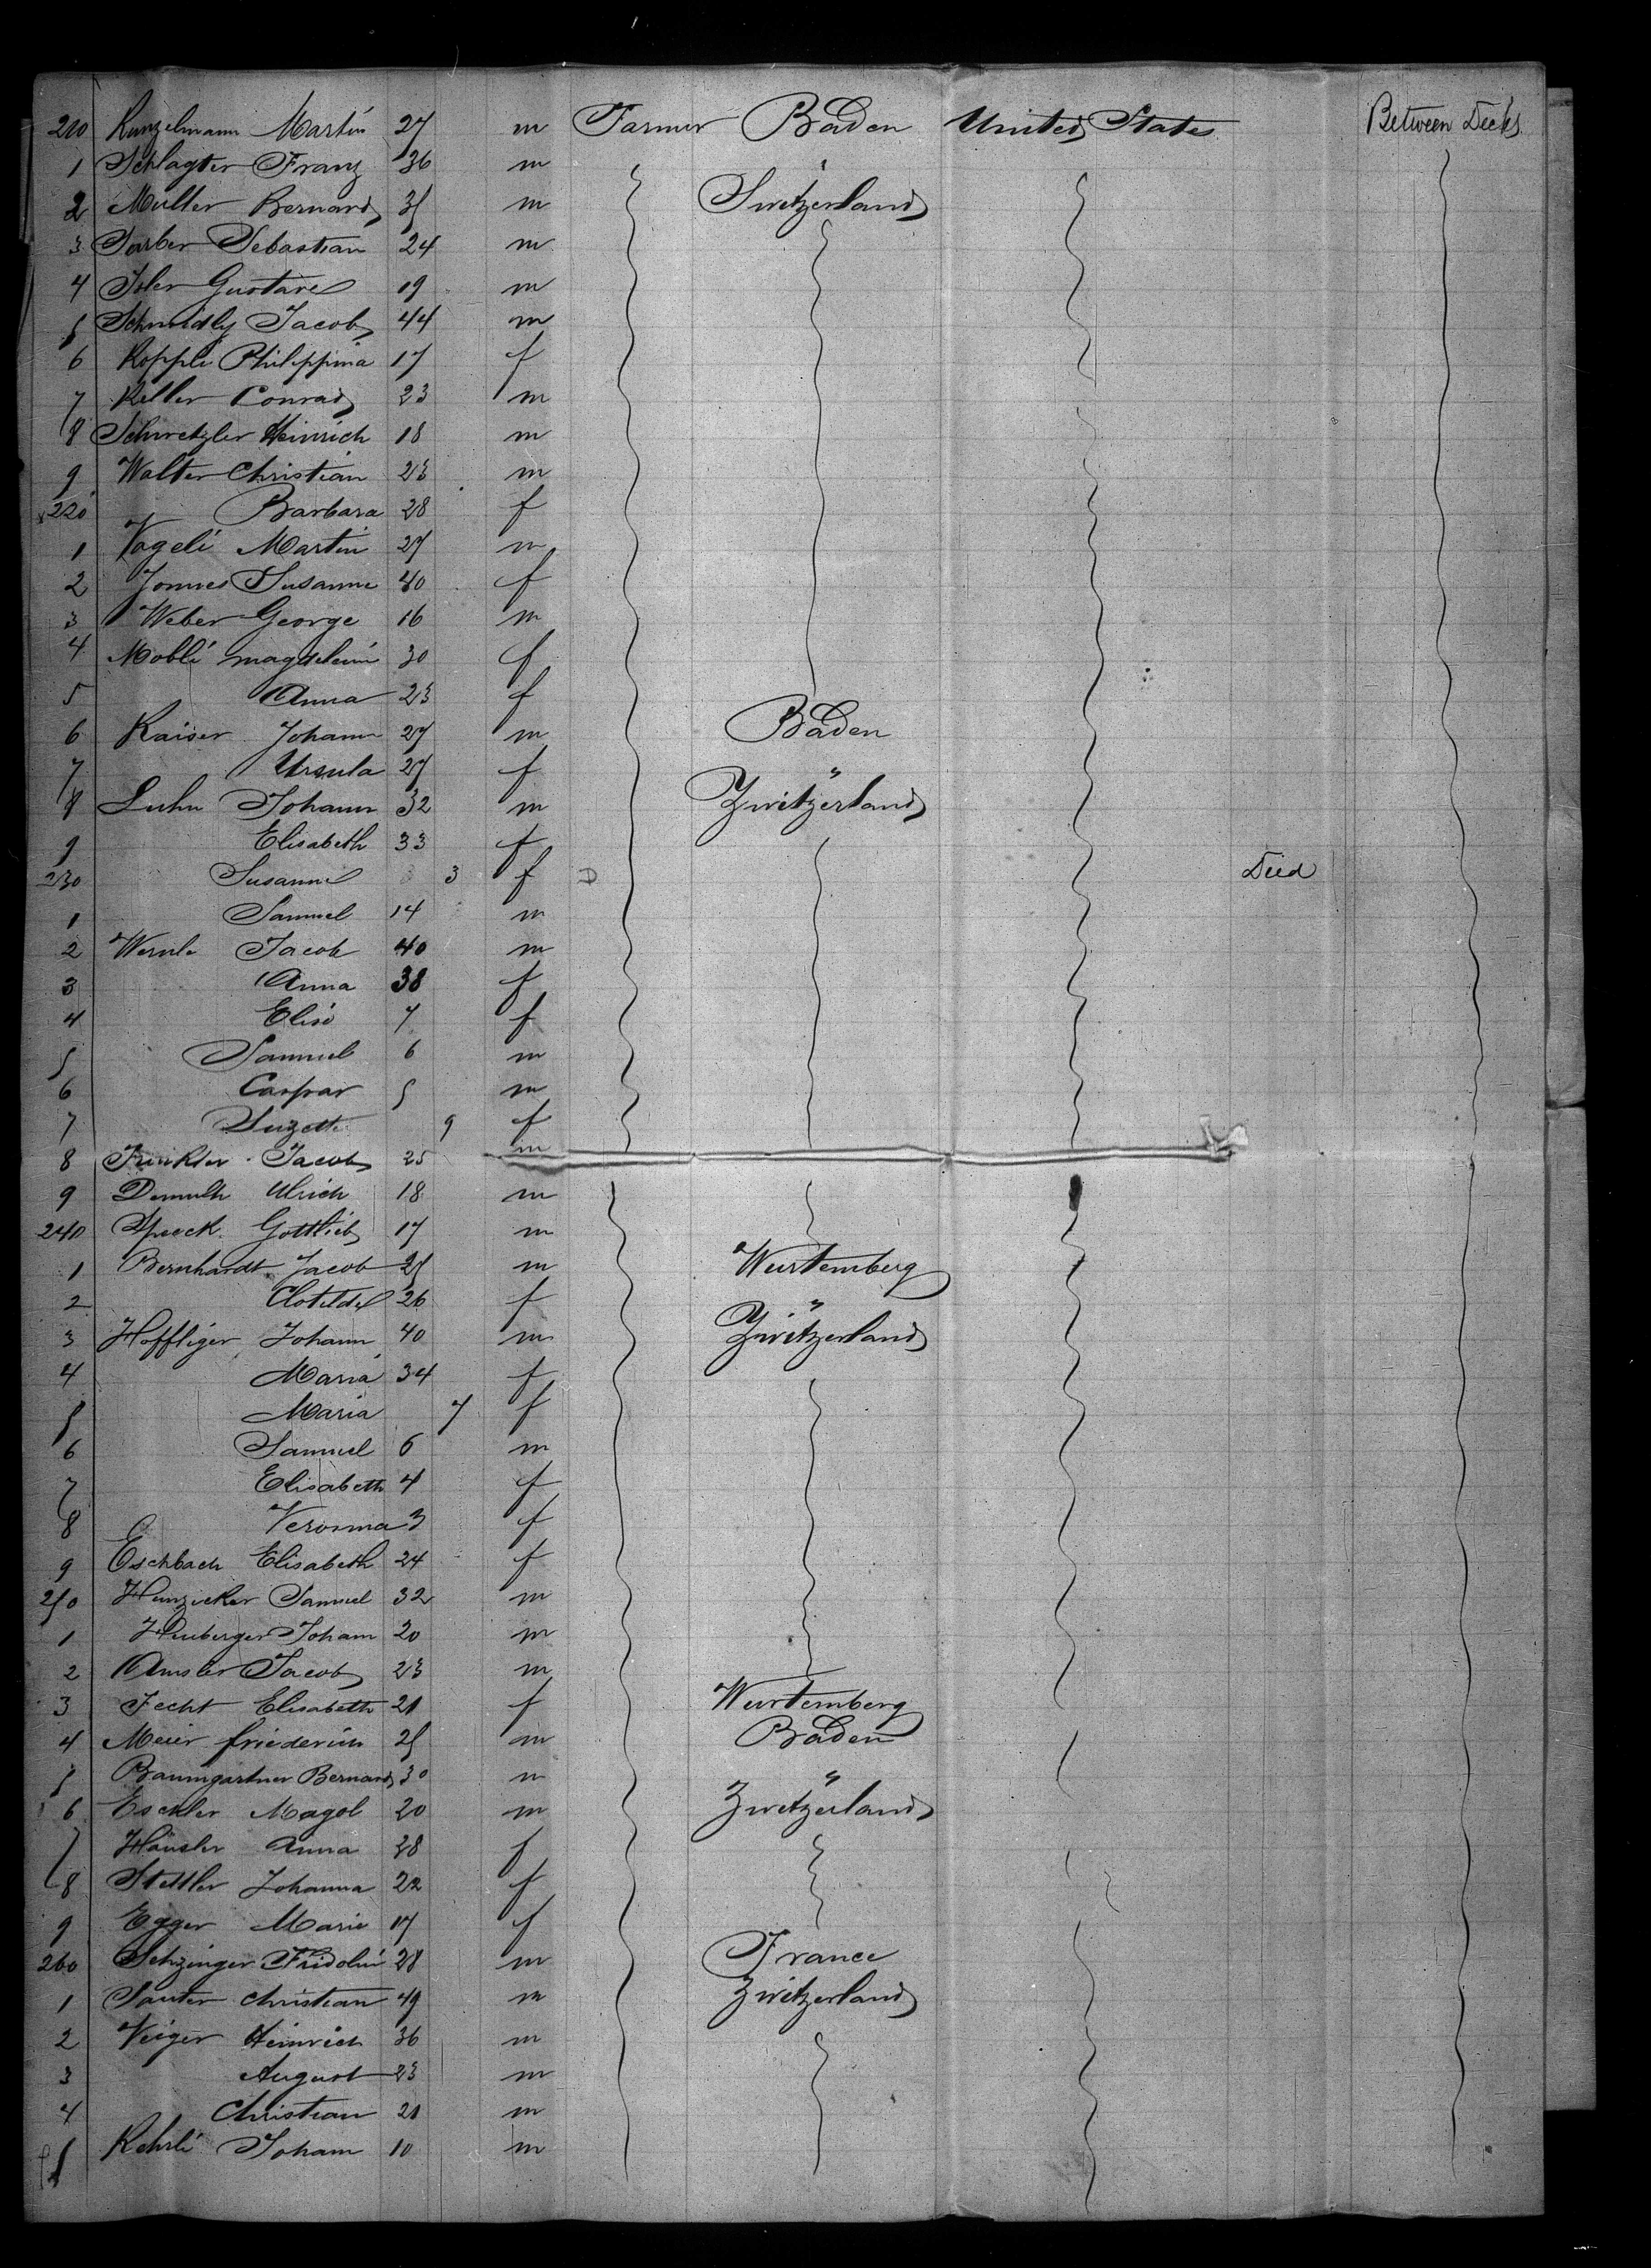 210 Kunzelmann Martin 27 m Farmer Baden United States Between Decks
1 Schlagter Franz 36 m "
2 Muller Bernard 35 m Switzerland
3 Farber Sebastian 24 m
4 Isler Gustave 19 m
5 Schmidly Jacob 44 m
6 Kopple Philippina 17 f
7 Keller Conrad 23 m
8 Schwetzler Heinrich 18 m
9 Walter Christian 23 m
220 Barbara 28 f
1 Vogeli Martin 27 m
2 Susanne 40 f
3 Weber George 16 m
4 Mobli 30 f
5 Anna 23 f
6 Kaiser Johann 27 m Baden
7 Ursula 27 f "
8 Luhn Johann 32 m Zwitzerland
9 Elisabeth 33 f
230 Susanne 3 f D Died
1 Samuel 14 m
2 Wernle Jacob 40 m
3 Anna 38 f
4 Elise 7 f
5 Samuel 6 m
6 Caspar 5 m
7 Suzette 9 f
8 Jacob 25 m
9 Demuth Ulrich 18 m
240 Speck Gottlieb 17 m
1 Bernhardt Jacob 25 m Wurtemberg
2 Clotilde 26 f "
3 Hoffliger Johann 40 m Zwitzerland
4 Maria 34 f
5 Maria 7 f
6 Samuel 6 m
7 Elisabeth 4 f
8 Veronna 3 f
9 Eschbach Elisabeth 24 f
250 Hunzicker Samuel 32 m
1 Heuberger Joham 20 m
2 Amsler Jacob 23 m
3 Fecht Elisabeth 21 f Wurtemberg
4 Meier 25 m Baden
5 Baumgartner Bernard 30 m "
6 Eschler Magol 20 m Zwetzerland
7 Häusler Anna 28 f
8 Stettler Johanna 22 f
9 Egger Marie 17 f
260 Setzinger Fridolin 28 m France
1 Sauter Christian 49 m Zwitzerland
2 Veiger Heinrich 36 m
3 August 23 m
4 Christian 21 m
5 Kehrli Joham 10 m